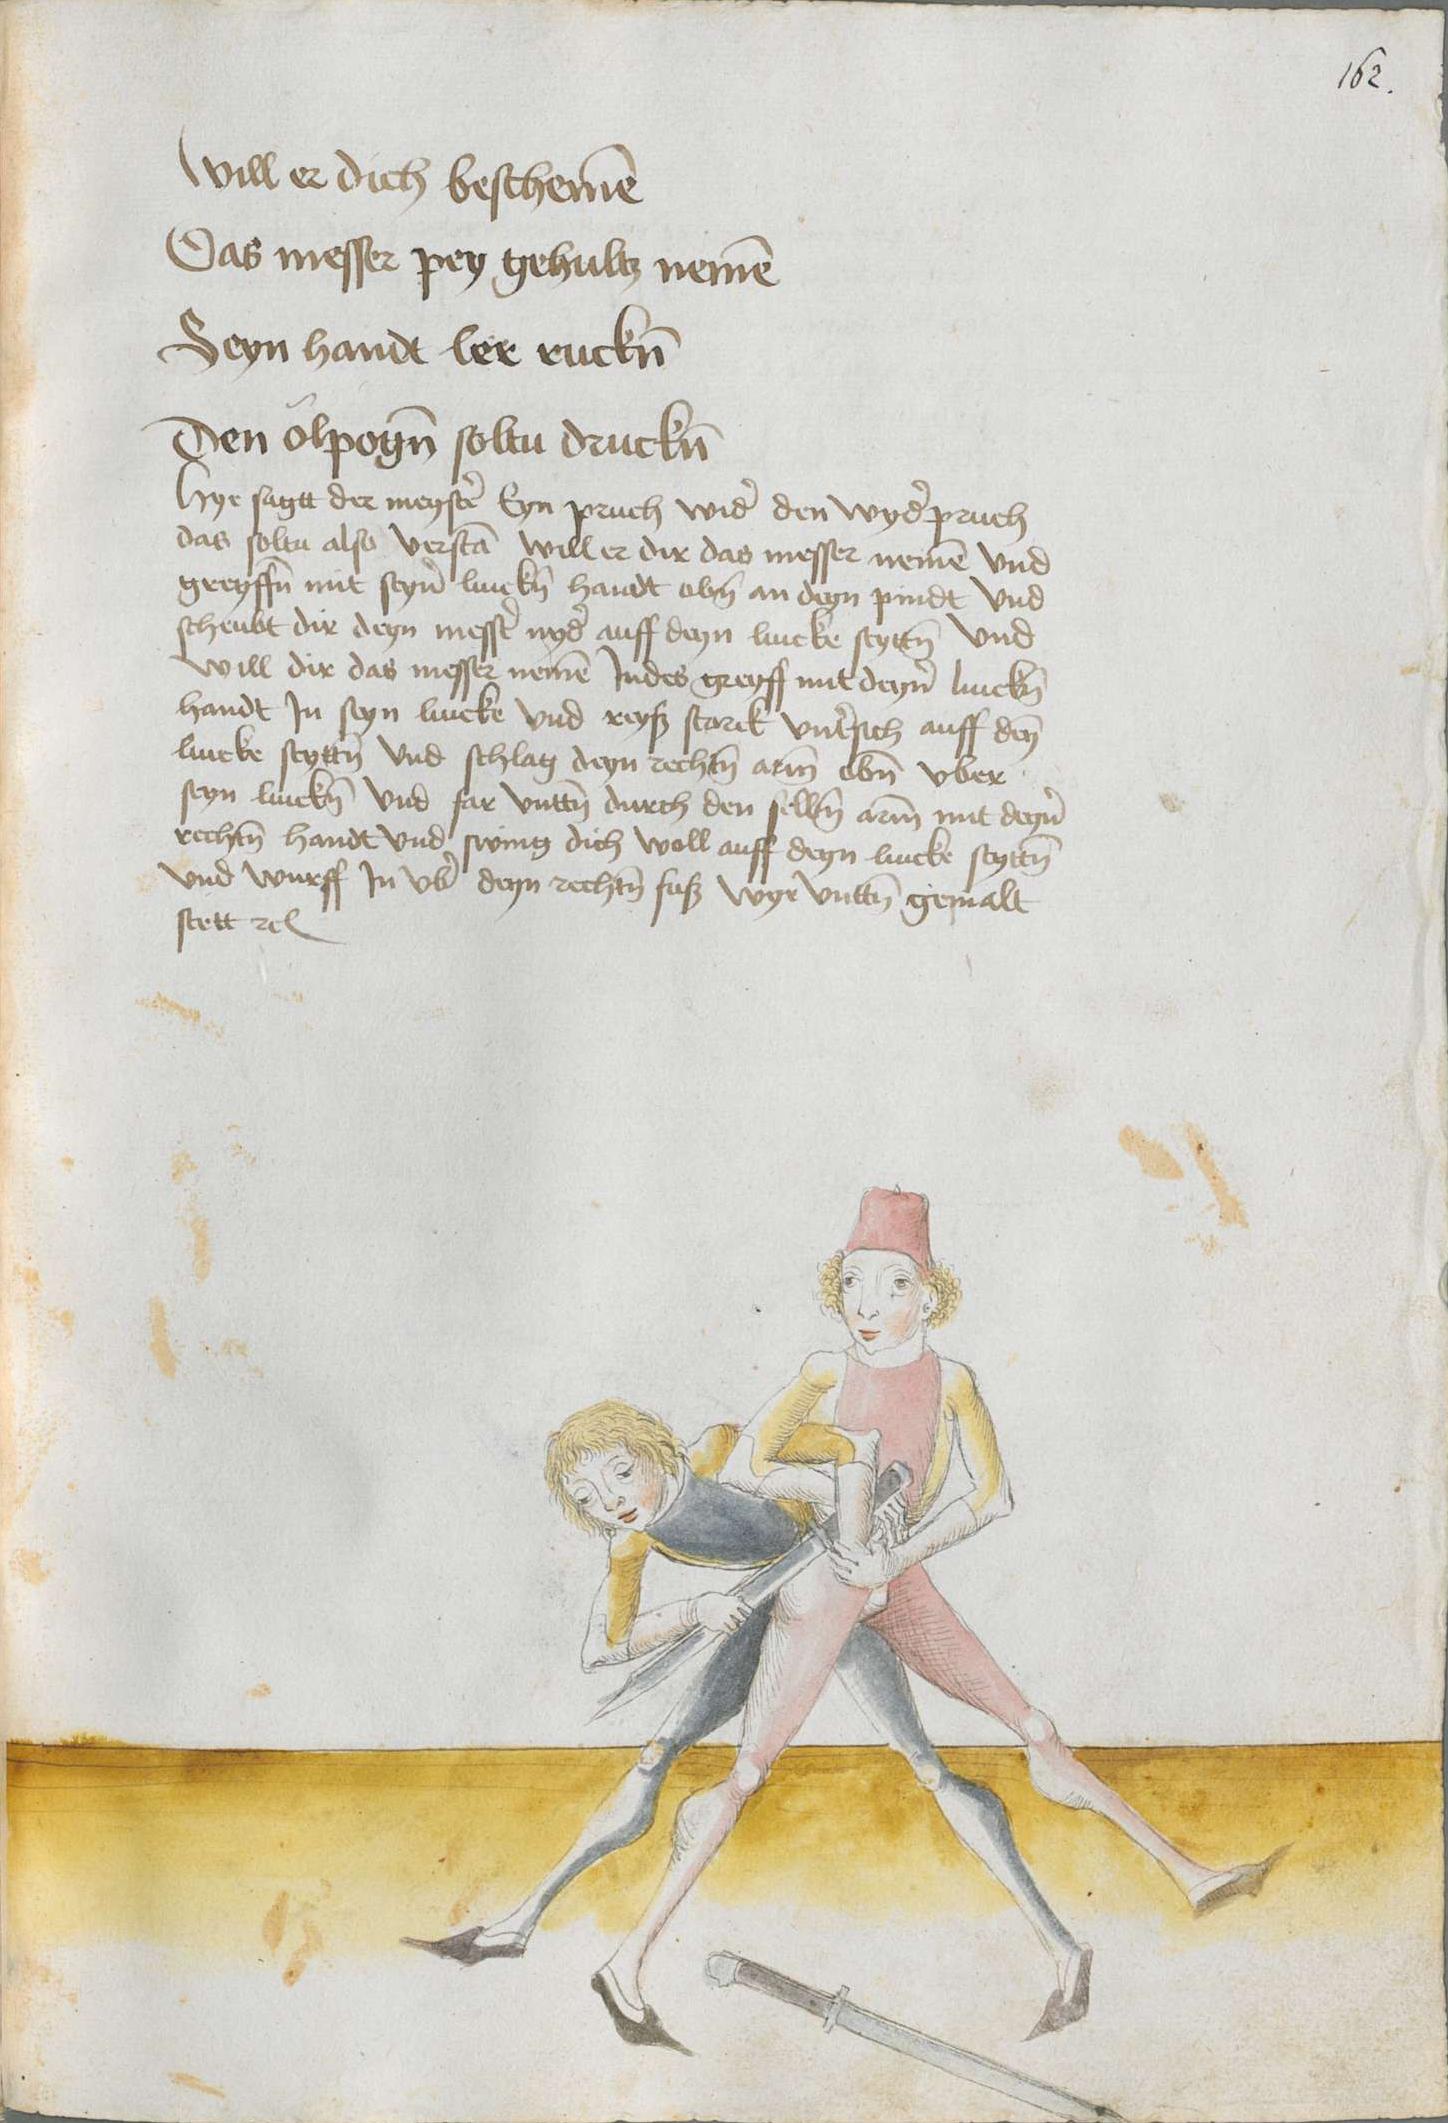 162.
Will er dich beschemē
Das messer pey gehultz nemē
Seyn handt ler ruckn̄
Den ölpogn̄ soltu druckn̄
Hye sagtt der meyst̉ Eyn pruch wid̉ den wyd̉pruch
das soltu also verstā will er dir das messer nemē vnd
greyffn̄ mit seyn̉ linckn̄ handt obn̄ an deyn pindt vnd
scheubt dir deyn mess̉ nyd̉ auff deyn lincke seyttn̄ vnd
will dir das messer nemē Indes greyff mit deyn̉ linckn̄
handt In seyn lincke vnd reyß starck vnt̉sich auff deȳ
lincke seyttn̄ vnd schlag deyn rechtn̄ arm̄ obn̄ vber
seyn linckn̄ vnd far vnttn̄ durch den selbn̄ arm̄ mit deyn̉
rechtn̄ handt vnd swing dich woll auff deyn lincke seyttn̄
vnd wurff In vb̉ deyn rechtn̄ fuß wye vnttn̄ gemalt
stett ⁊c